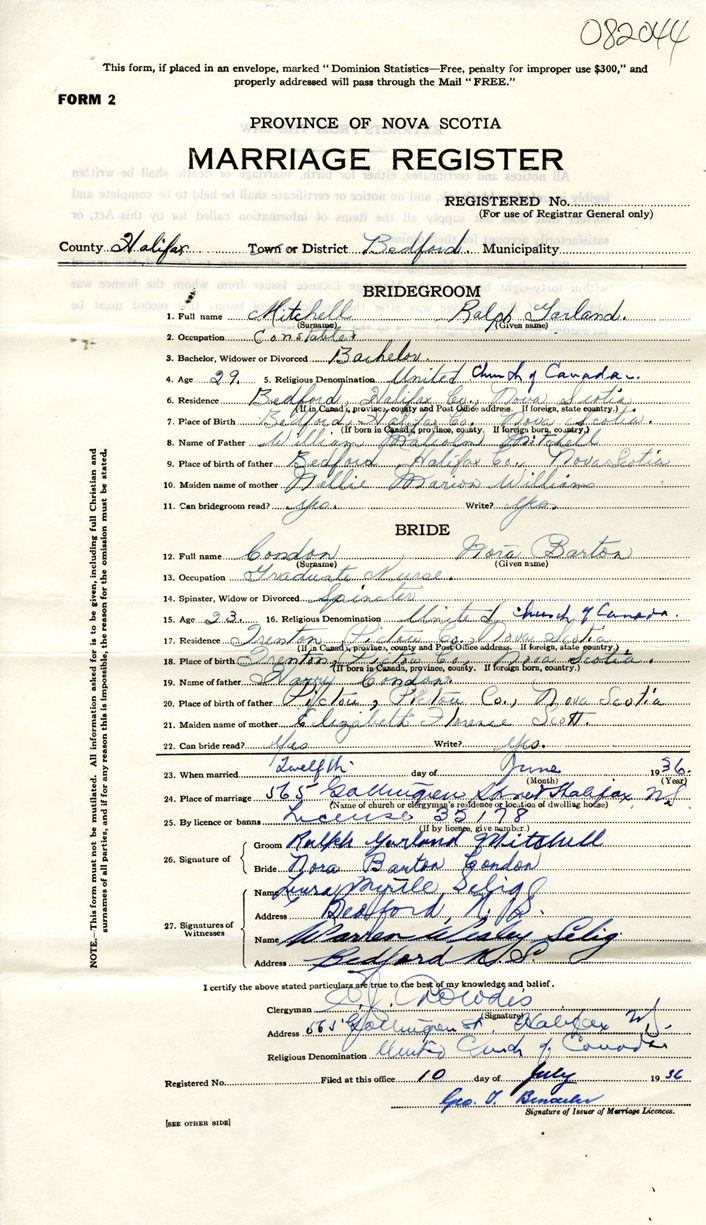 082044
This form, if placed in an envelope, marked "Dominion Statistics—Free, penalty for improper use $300," and
properly addressed will pass through the Mail "FREE."
FORM 2
PROVINCE OF NOVA SCOTIA
MARRIAGE REGISTER
REGISTERED No.
(For use of Registrar General only)
County Halifax Town or District Bedford. Municipality
BRIDEGROOM
1. Full name Mitchell Ralph Garland.
(Surname) (Given name)
2. Occupation Constable.
3. Bachelor, Widower or Divorced Bachelor.
4. Age 29. 5. Religious Denomination United Church of Canada.
6. Residence Bedford, Halifax Co., Nova Scotia
(If in Canada, province, county and Post Office address. If foreign, state country.)
7. Place of Birth Bedford, Halifax Co. Nova Scotia.
(If born in Canada, province, county. If foreign born, country.)
8. Name of Father William Malcolm Mitchell
9. Place of birth of father Bedford Halifax Co., Nova Scotia
10. Maiden name of mother Nellie Marion Williams
11. Can bridegroom read? Yes. Write? Yes.
BRIDE
12. Full name Condon Nora Barton
(Surname) (Given name)
13. Occupation Graduate Nurse.
14. Spinster, Widow or Divorced Spinster
15. Age 23. 16. Religious Denomination United Church of Canada.
17. Residence Trenton, Pictou Co., Nova Scotia
(If in Canada, province, county and Post Office address. If foreign, state country.)
18. Place of birth Trenton, Pictou Co., Nova Scotia.
(If born in Canada, province, county. If foreign born, country.)
19. Name of father Harry Condon.
20. Place of birth of father Pictou, Pictou Co., Nova Scotia
21. Maiden name of mother Elizabeth Florence Scott.
22. Can bride read? Yes Write? Yes.
23. When married Twelfth day of June 1936.
(Month) (Year)
24. Place of marriage 565 Gottingen Street Halifax NS
(Name of church or clergyman's residence or location of dwelling house)
25. By licence or banns License 33178
(If by licence, give number.)
26. Signature of
Groom Ralph Garland Mitchell
Bride Nora Barton Condon
27. Signatures of Witnesses
Name Laura Myrtle Selig
Address Bedford, N.S.
Name Warren Wesley Selig
Address Bedford N.S.
I certify the above stated particulars are true to the best of my knowledge and belief.
Clergyman
(Signature)
Address 565 Gottingen St. Halifax NS.
Religious Denomination United Church of Canada
Registered No. Filed at this office 10 day of July 1936
Geo. T.
Signature of Issuer of Marriage Licences.
[SEE OTHER SIDE]
NOTE.—This form must not be mutilated. All information asked for is to be given, including full Christian and
surnames of all parties, and if for any reason this is impossible, the reason for the omission must be stated.